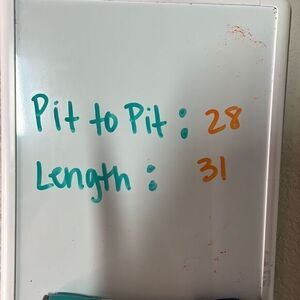 Pit to Pit: 28
Length: 31